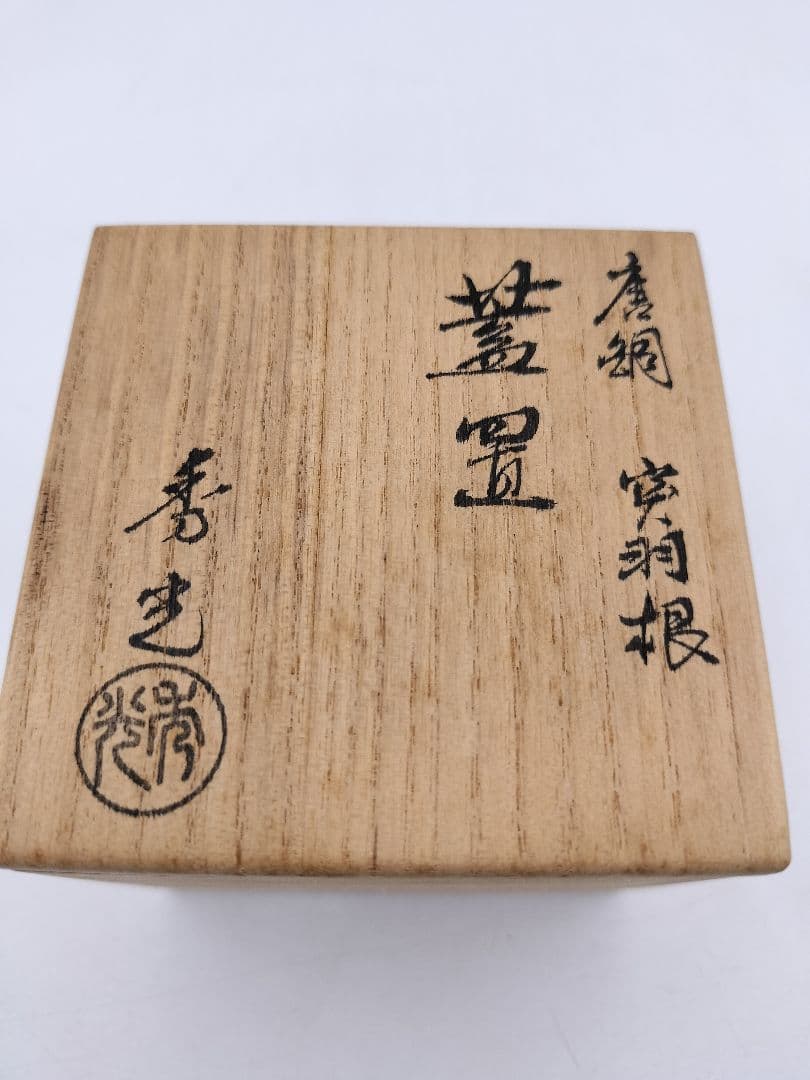 唐銅 突羽根
蓋置
秀光
秀光